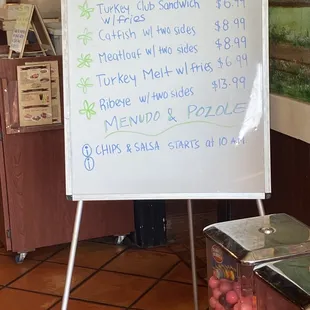 Turkey Club Sandwich
w/fries
Catfish w/ two sides $8.99
Meatloaf w/ two sides $8.99
Turkey Melt w/ fries $6.99
Ribeye w/ two sides $13.99
MENUDO & POZOLE
CHIPS & SALSA STARTS at 10 AM